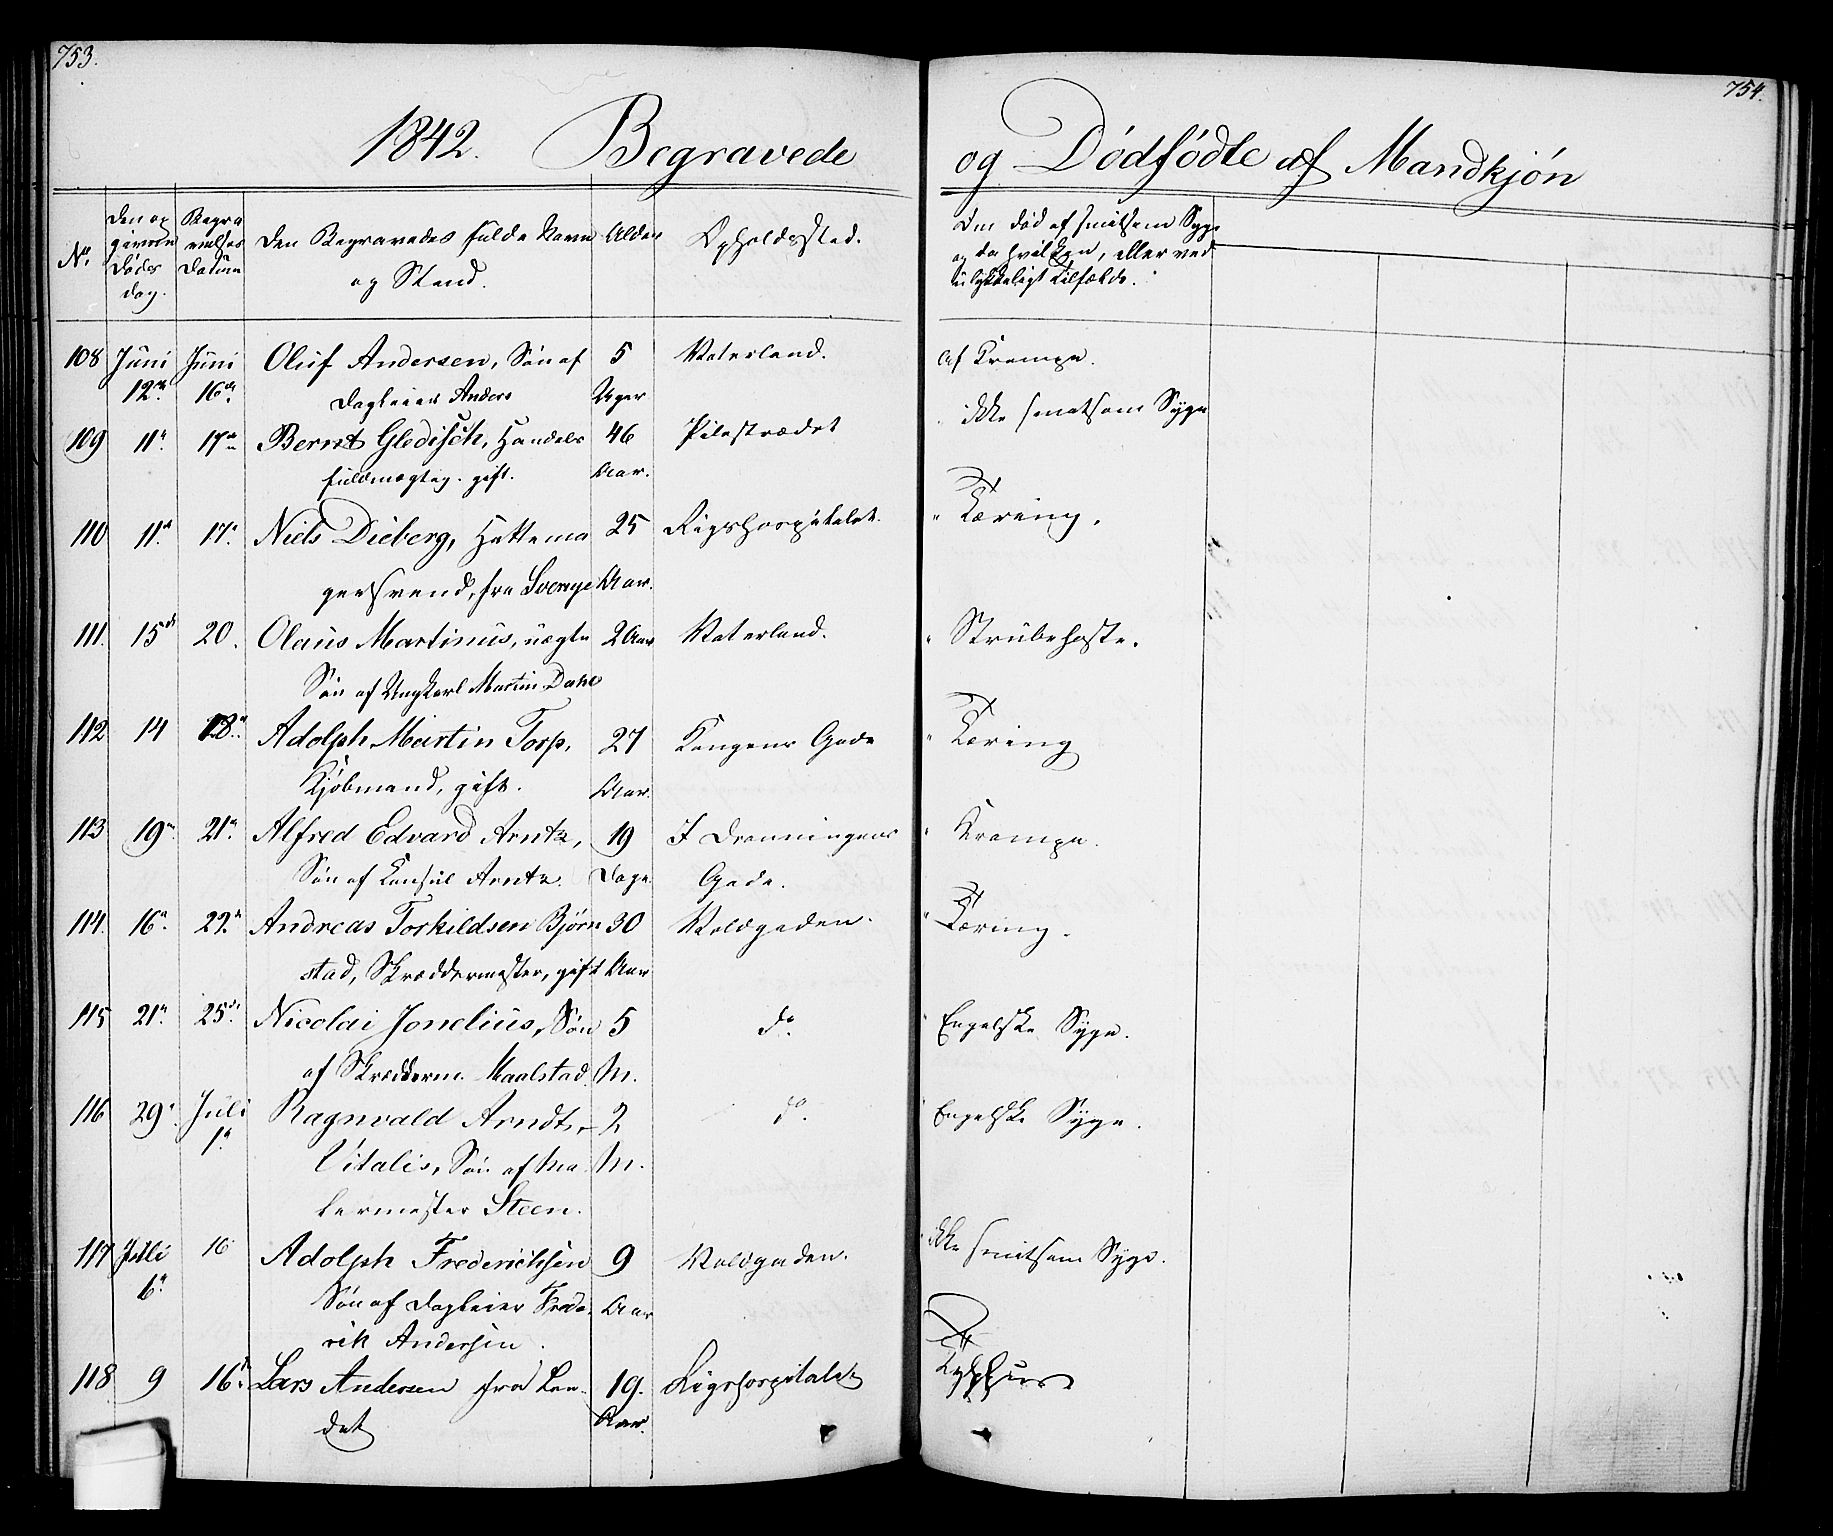 753.
754.
1842. Begravede og Dødfødte af Mandkjøn
No. Den op givne Døds dag. Begra velses Datum Den Begravedes fulde Navn og Stand. Alder Opholdssted. Om død af smitsom Syge og da hvilken, eller ved ulykkeligt Tilfælde.
108 Juni Juni Oluf Andersen, Søn af 5 Vaterland. af Krampe.
12te 16de Dagleier Anders Uger
109 11te 17de Bernt Gleditsch, Handels 46 Pilestrædet ikke smitsom Syge
fuldmægtig. gift. Aar.
110 11te 17de Niels Dieberg, Hattema 25 Rigshospitalet. " Tæring.
gersvend, fra Sverrige Aar.
111. 15de 20. Olaus Martinus, uægte 2 Aar Vaterland. " Strubehoste.
Søn af Ungkarl Martin Dahl
112 14 18de Adolph Martin Torp, 27 Kongens Gade " Tæring
Kjøbmand, gift. Aar.
113 19de 21de Alfred Edvard Arntz, 19 I Dronningens " Krampe.
Søn af Consul Arntz. Dage Gade.
114. 16de 22de Andreas Torkildsen Bjørn 30 Voldgaden. " Tæring.
stad, Skræddermester, gift Aar
115 21de 25de Nicolai Jonelius, Søn 5 do. " Engelske Syge.
af Skrædderm. Maalstad. M.
116 29de Juli Ragnvald Arndt, 2 do. " Engelske Syge.
1te Vitalis, Søn af Ma M.
lermester Steen.
117 Juli 16 Adolph Frederichsen 9 Voldgaden. " ikke smitsom Syge.
6te Søn af Dagleier Frede Aar
rik Andersen.
118 9 16de Lars Andersen fra Lan 19. Rigshospitalet Typhus
det Aar.